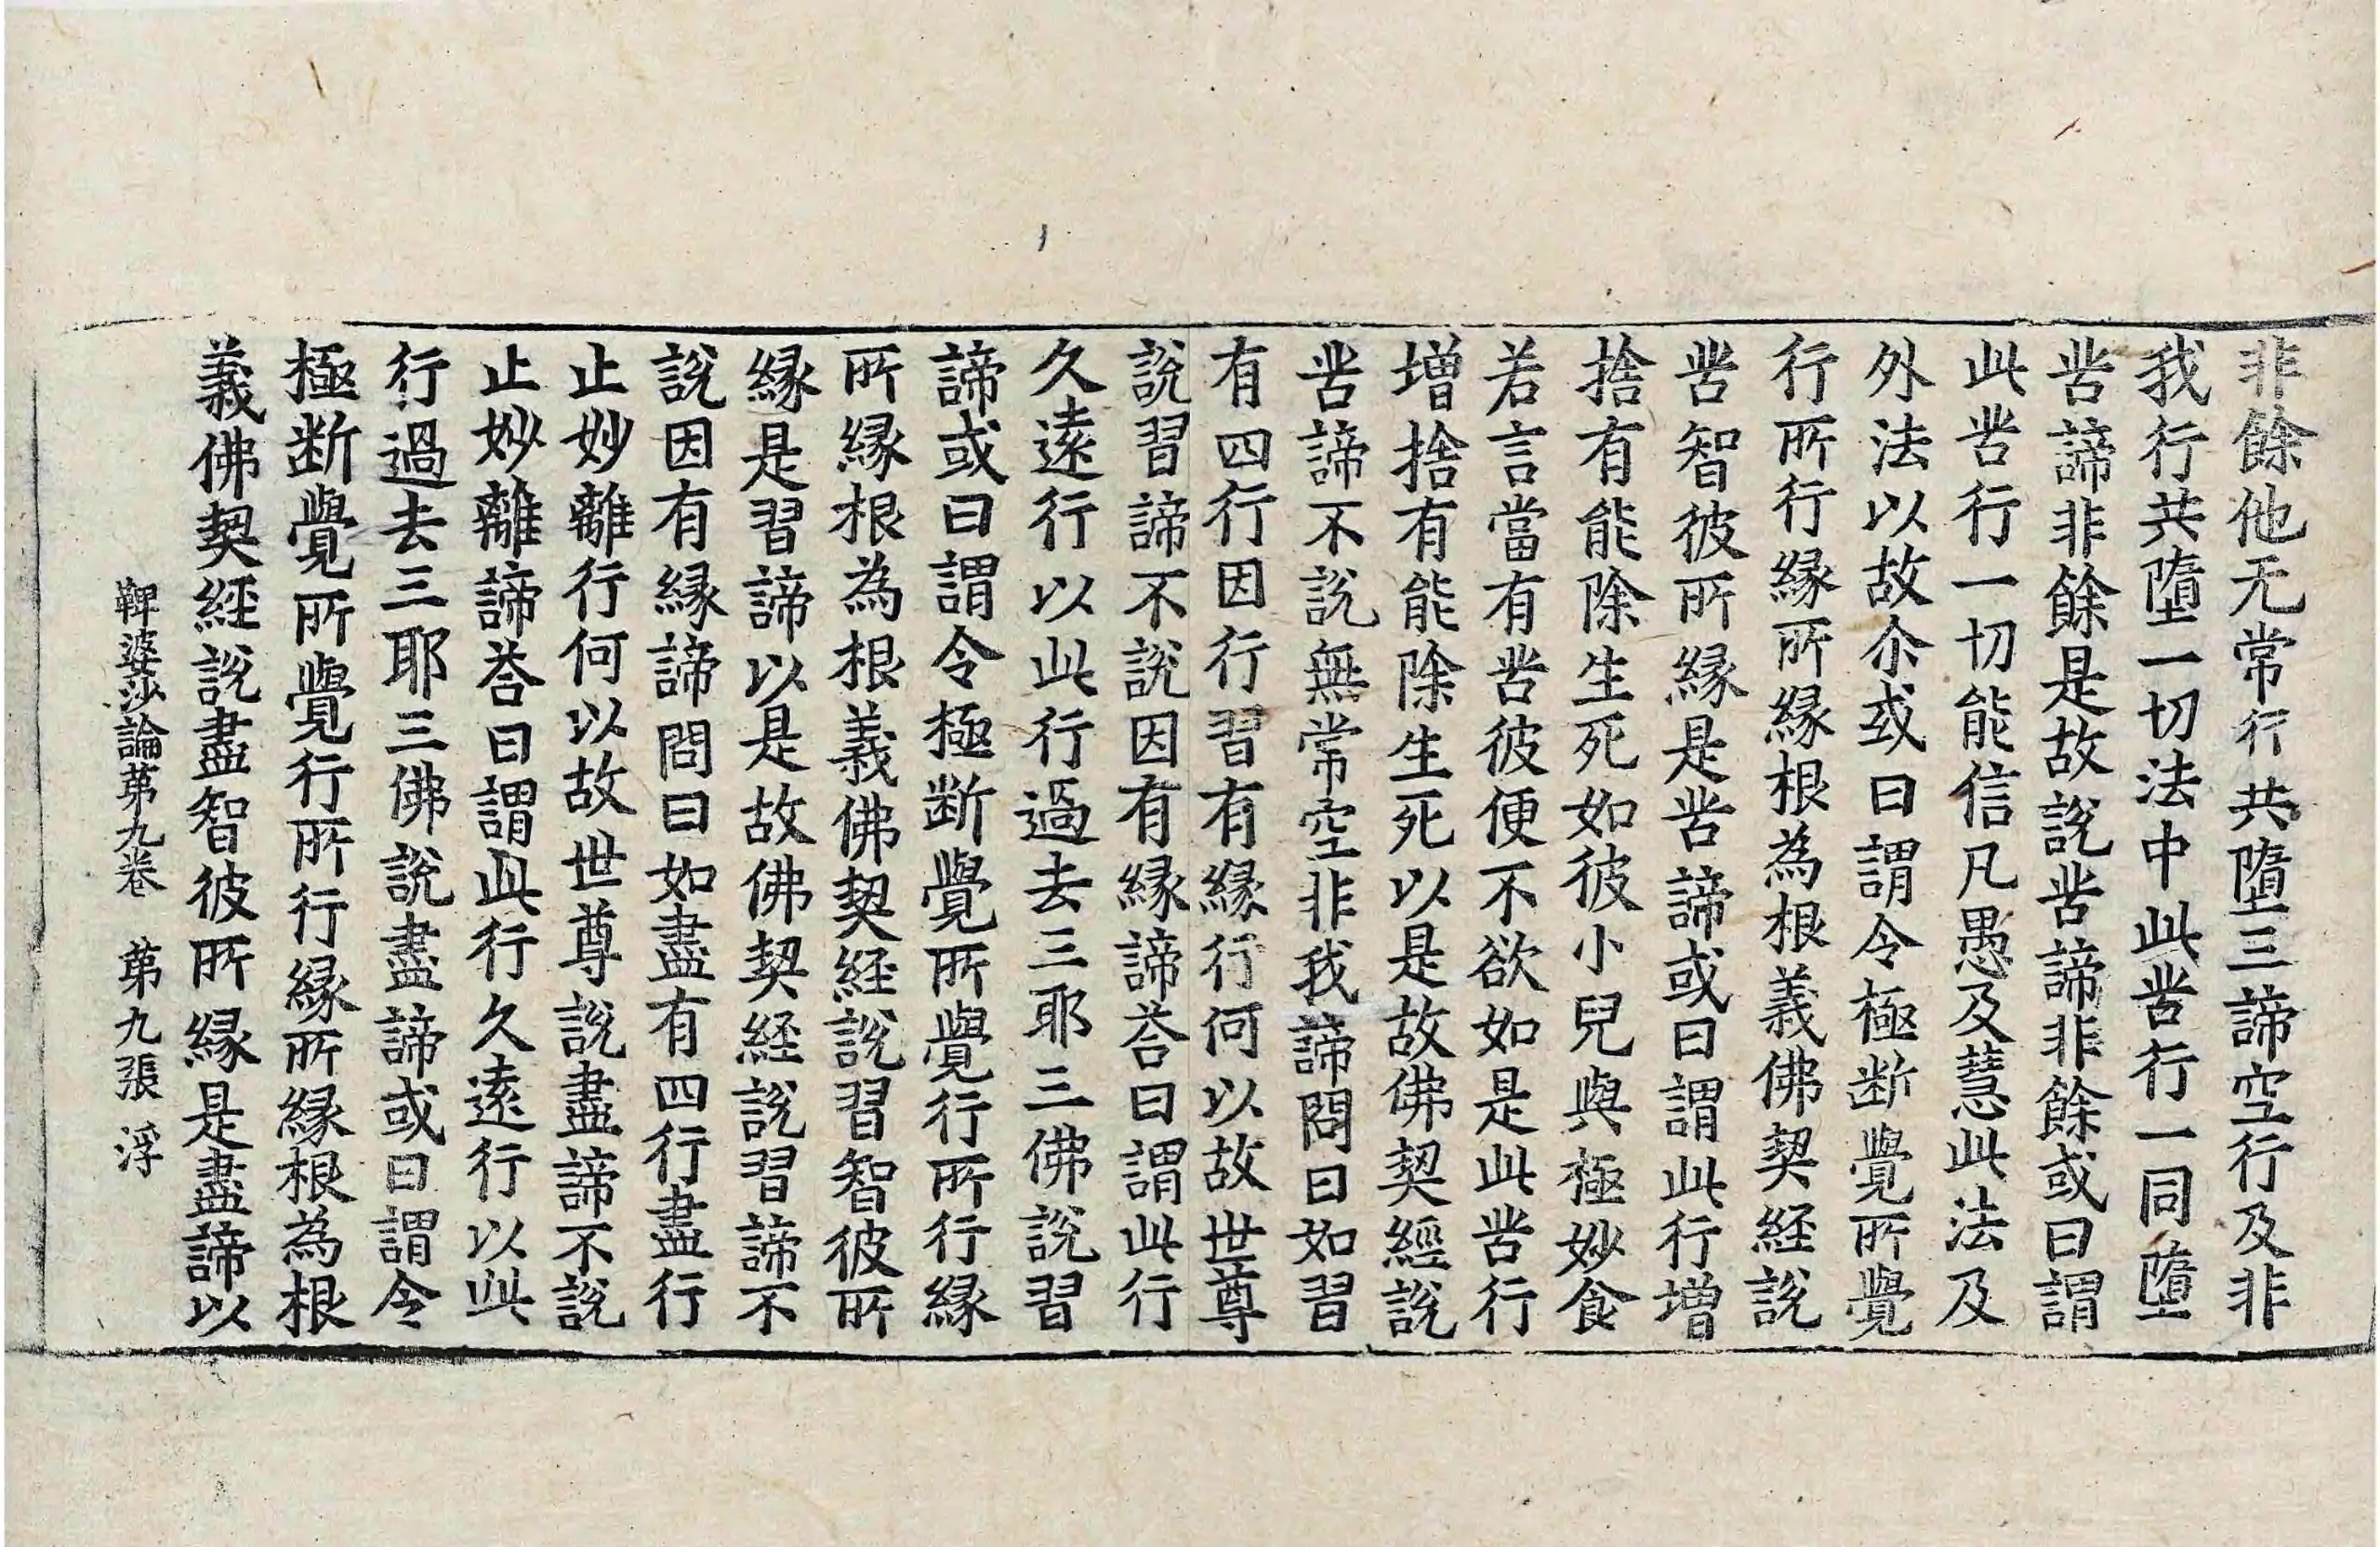 非餘他无常行共墮三諦空行及非
我行共墮一切法中此苦行一同墮
苦諦非餘是故說苦諦非餘或曰謂
此苦行一切能信凡愚及慧此法及
外法以故尒或曰謂令極断覺所覺
行所行縁所縁根為根義佛契経說
苦智彼所縁是苦諦或曰謂此行増
捨有能除生死如彼小兒與極妙食
若言當有苦彼便不欲如是此苦行
増捨有能除生死以是故佛契經說
苦諦不說無常空非我諦問曰如習
有四行因行習有縁行何以故世尊
說習諦不說因有縁諦荅曰謂此行
久遠行以此行過去三耶三佛說習
諦或曰謂令極断覺所覺行所行縁
所縁根為根義佛契経說習智彼所
縁是習諦以是故佛契経說習諦不
說因有縁諦問曰如盡有四行盡行
止妙離行何以故世尊說盡諦不說
止妙離諦荅曰謂此行久遠行以此
行過去三耶三佛說盡諦或曰謂令
極断覺所覺行所行縁所縁根為根
義佛契経說盡智彼所縁是盡諦以
鞞婆沙論第九卷　第九張　浮